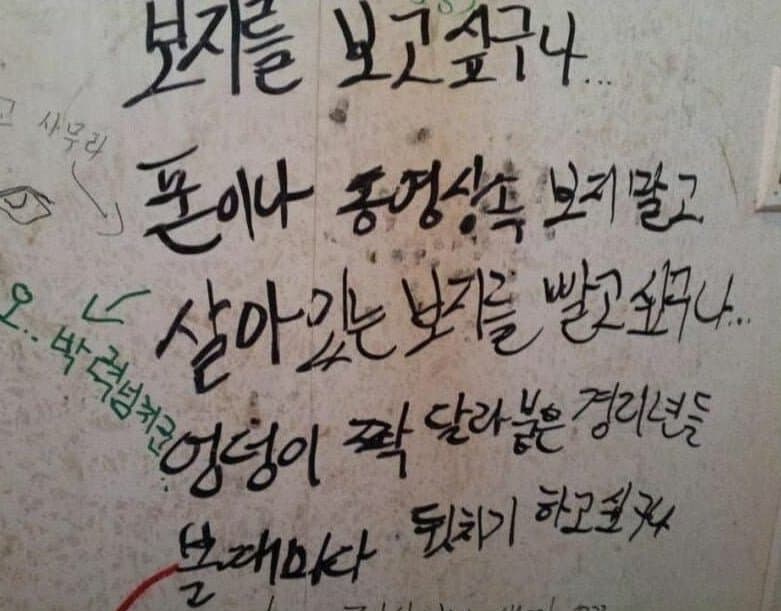 보지를 보고싶구나...
사무라
폰이나 동영상속 보지말고
살아있는 보지를 빨고싶구나...
오.. 박력넘치군..
엉덩이 짝 달라붙은 경리년들
볼때마다 뒷치기 하고싶구나